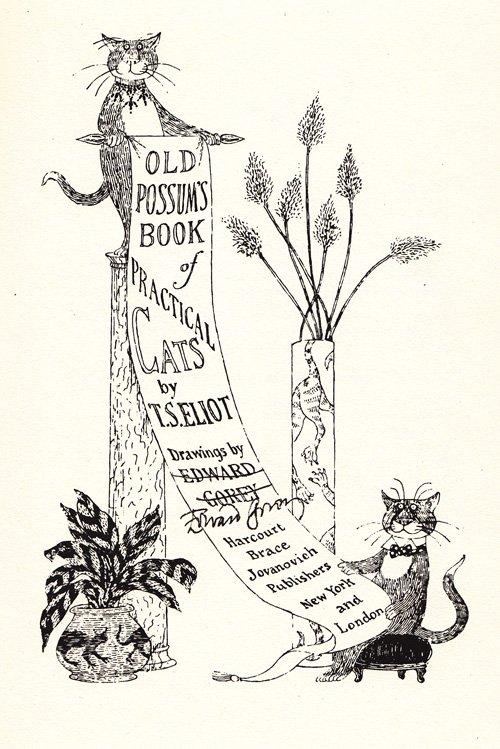 OLD
POSSUM'S
BOOK
of
PRACTICAL
CATS
by
T.S. ELIOT
Drawings by
EDWARD
GOREY
Edward Gorey
Harcourt
Brace
Jovanovich
Publishers
New York
and
London